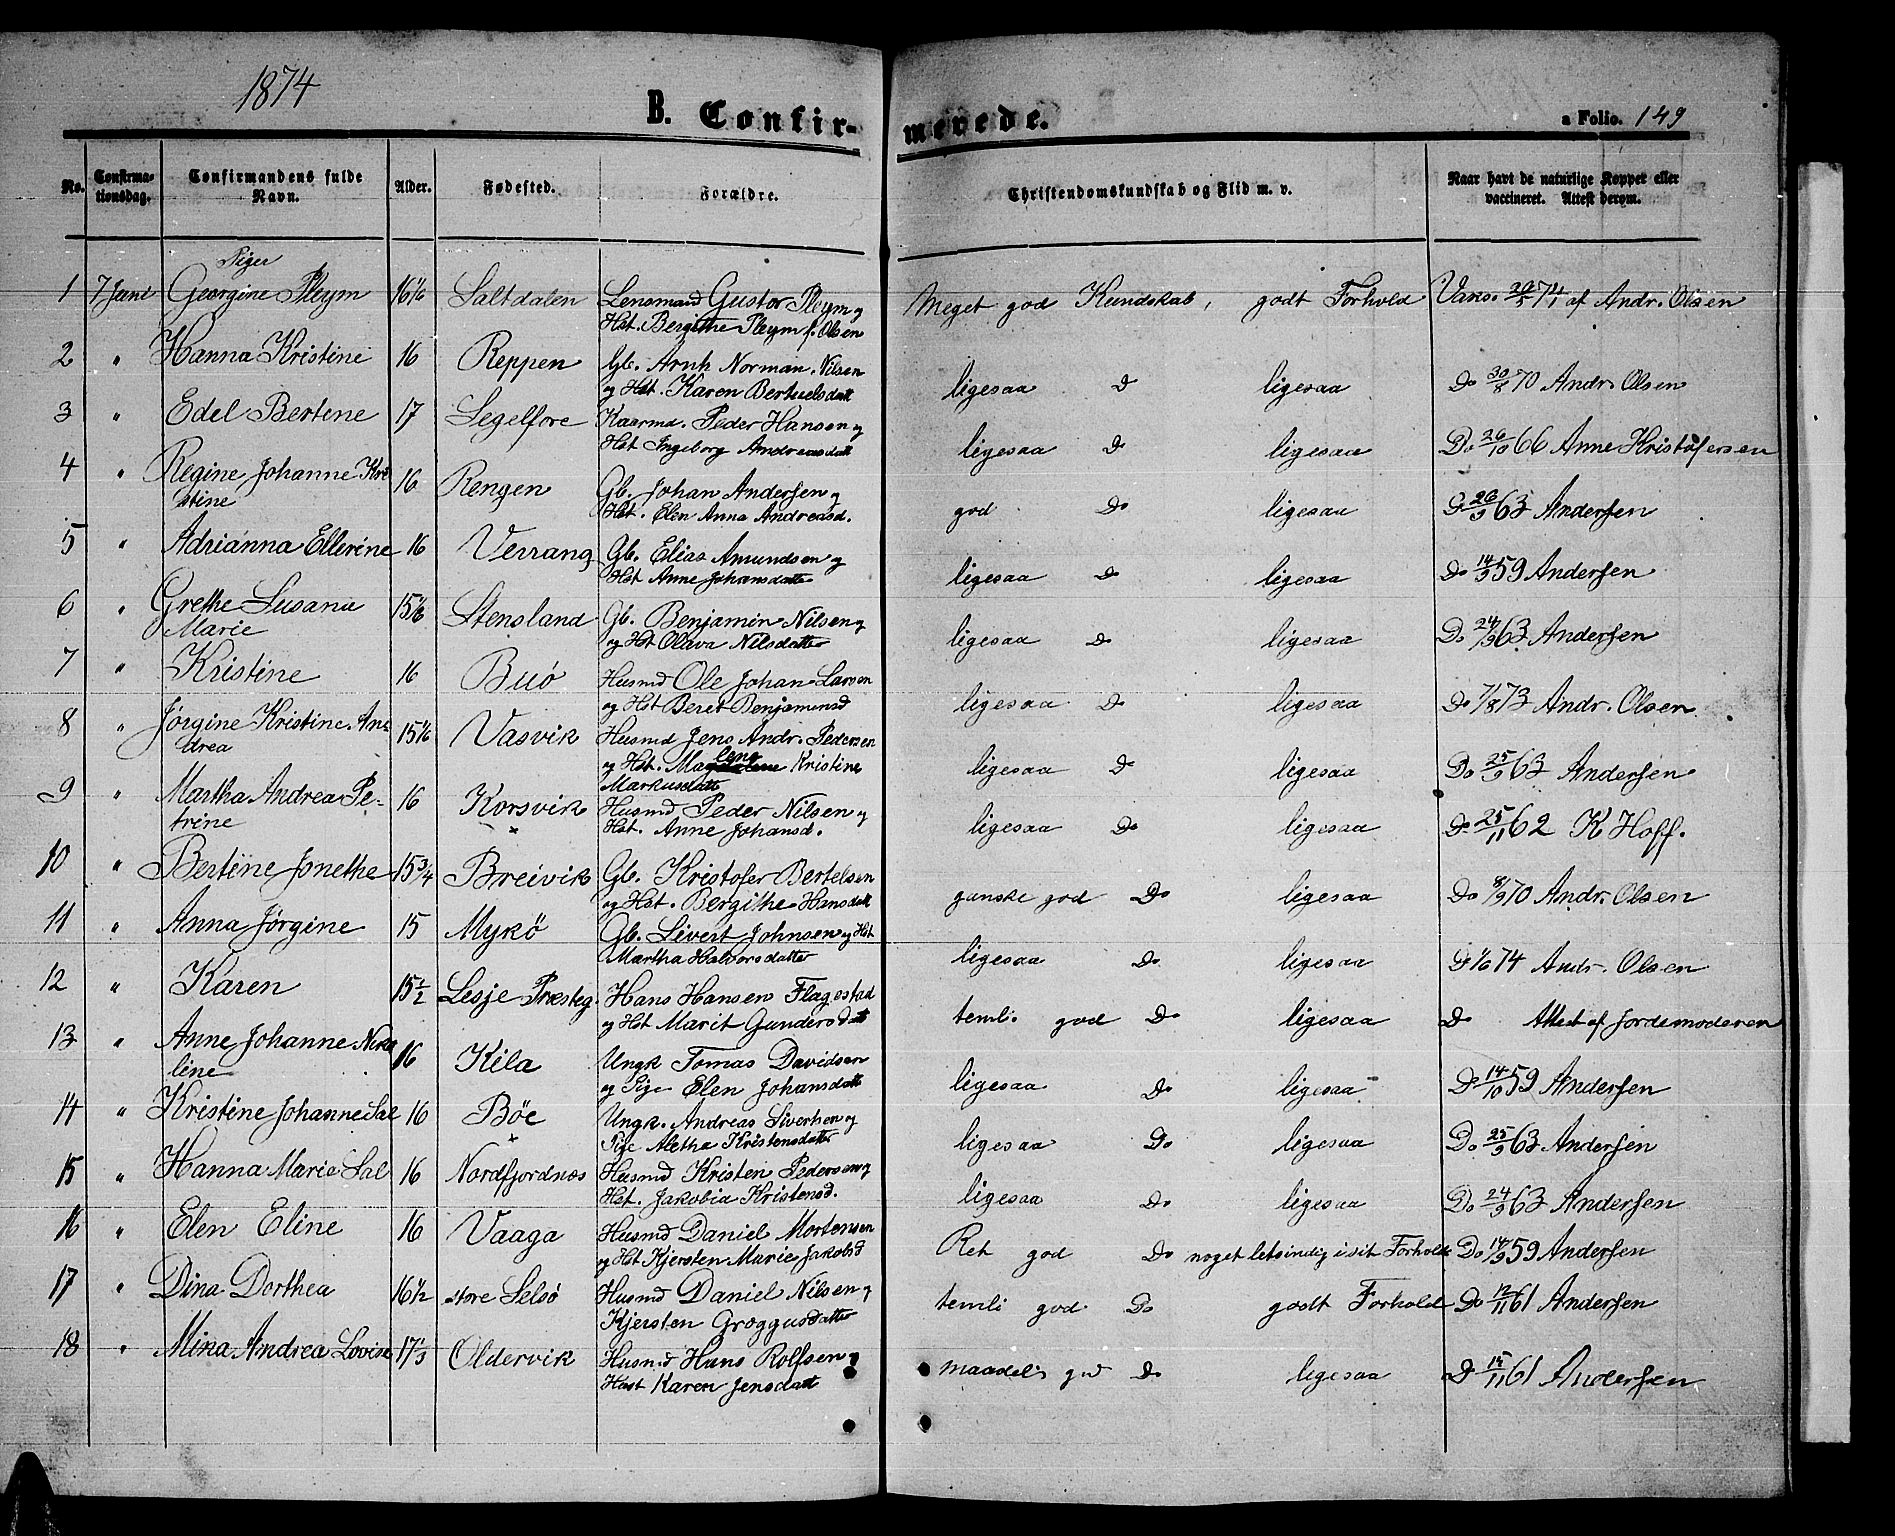 1874
B. Confir-
merede.
a Folio. 149
No. Confirma-tionsdag. Confirmandens fulde Navn. Alder. Fødested. Forældre. Christendomskundskab og Flid m. v. Naar havt de naturlige Kopper eller vaccineret. Attest derom.
Piger
1 7 Juni Georgine Pleym 16 1/6 Saltdalen Lensmand Gustor Pleym og Meget god Kundskab, godt Forhold Vaks. 26/5 71 af Andr. Olsen
Hst. Bergithe Pleym f. Olsen
2 " Hanna Kristine 16 Reppen Gb. Arnh Norman Nilsen ligesaa Do ligesaa Do 30/8 70 Andr. Olsen
og Hst. Karen Bertuelsdatt
3 " Edel Bertene 17 Segelfore Kaarmd. Peder Hansen og ligesaa Do ligesaa Do 26/10 66 Anne Kristofersen
Hst Ingeborg Andreasdatt
4 " Regine Johanne Kri- 16 Rengen Gb. Johan Andersen og god Do ligesaa Do 26/9 63 Andersen
stine Hst. Elen Anna Andreasd.
5 " Adrianna Ellerine 16 Verrang Gb. Elias Amundsen og ligesaa Do ligesaa Do 14/9 59 Andersen
Hst Anne Johansdatter
6 " Grethe Susana 15 1/6 Stensland Gb. Benjamin Nilsen og ligesaa Do ligesaa Do 24/9 63 Andersen
Marie og Hst Olava Nilsdatter
7 " Kristine 16 Buø Husmd Ole Johan Larsen ligesaa Do ligesaa Do 7/8 73 Andr. Olsen
og Hst Beret Benjaminsd
8 " Jørgine Kristine An- 15 1/6 Vasvik Husmd Jens Andr. Pedersen ligesaa Do ligesaa Do 25/9 63 Andersen
drea og Hst. Magdalene lena Kristine
Markusdatt
9 " Martha Andrea Pe- 16 Korsvik Husmd Peder Nilsen og ligesaa Do ligesaa Do 25/11 62 K Hoff.
trine Hst. Anne Johansd.
10 " Bertine Jonethe 15 3/4 Breivik Gb. Kristofer Bertelsen ganske god Do ligesaa Do 8/9 70 Andr. Olsen
og Hst. Bergithe Hansdatt
11 " Anna Jørgine 15 Mykø Gb. Sivert Johnsen og Hst ligesaa Do ligesaa Do 1/6 74 Andr. Olsen
Martha Halvorsdatter
12 " Karen 15 1/2 Lesje Præsteg. Hans Hansen Flagestad temli. god Do ligesaa Do Attest af Jordemoderen
og Hst Marit Gundersdatt
13 " Anne Johanne Niko- 16 Kila Ungk Tomas Davidsen ligesaa Do ligesaa Do 14/10 59 Andersen
line og Pige Elen Johansdatt
14 " Kristine Johanne Sal 16 Bøe Ungk. Andreas Sivertsen og ligesaa Do ligesaa Do 25/9 63 Andersen
Pige Aletha Kristensdatter
15 " Hanna Marie Sal 16 Nordfjordnes Husmd Kristen Pedersen og ligesaa Do ligesaa Do 24/9 63 Andersen
Hst. Jakobia Kristensd.
16 " Elen Eline 16 Vaaga Husmd Daniel Mortensen Ret god Do noget letsindig i sit Forhold Do 14/9 59 Andersen
og Hst Kjersten Marie Jakobsd
17 " Dina Dorthea 16 1/2 store Selsø Husmd Daniel Nilsen og temli god Do godt Forhold Do 12/11 61 Andersen
Kjersten Groggusdatter
18 " Mina Andrea Lovise 17 1/3 Oldervik Husmd Hans Rolfsen og maadeli god Do ligesaa Do 15/11 61 Andersen
Hust Karen Jensdatt